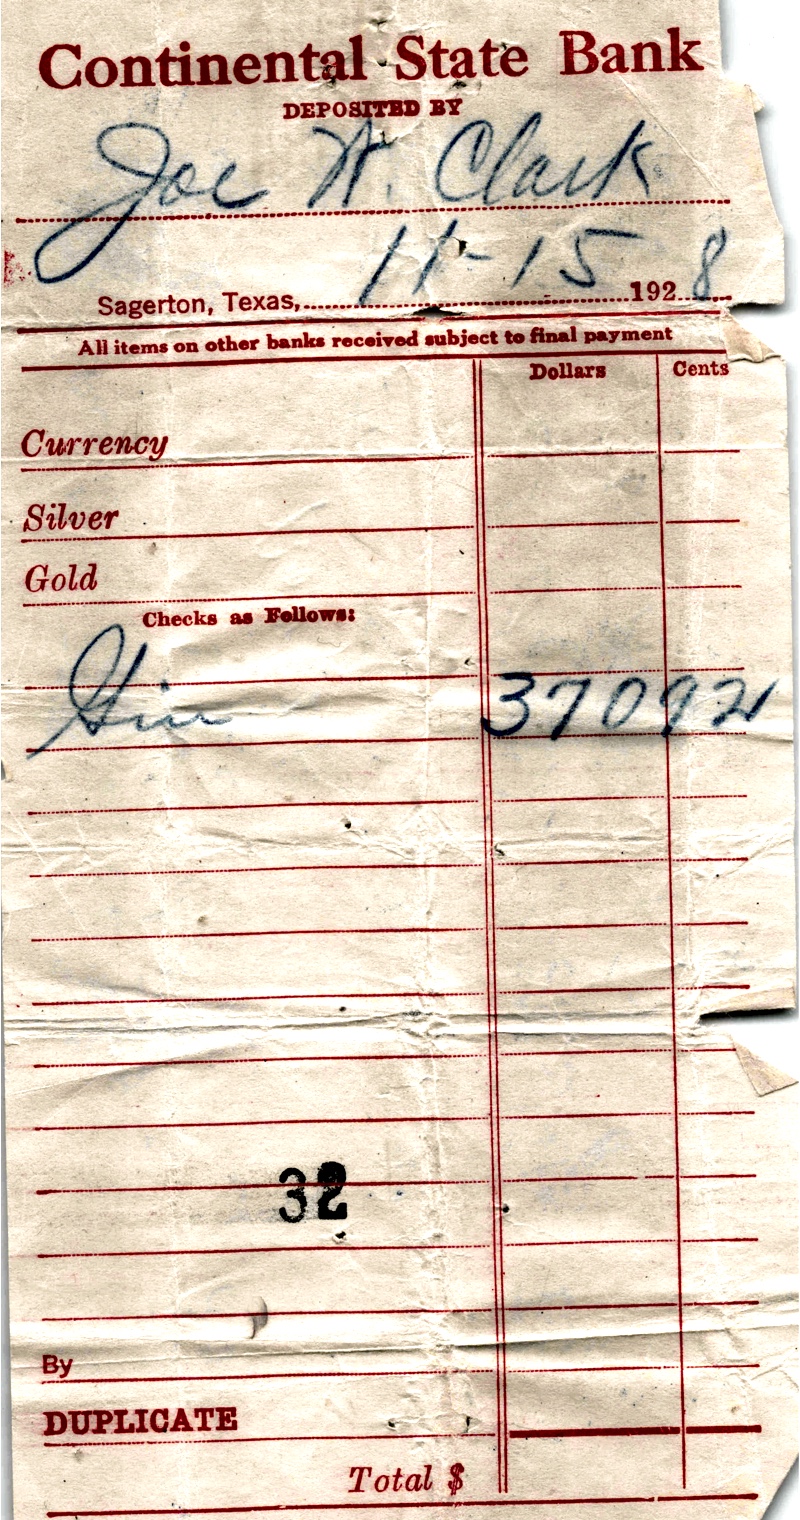 Continental State Bank
DEPOSITED BY
Joe W. Clark
Sagerton, Texas, 11-15 1928
All items on other banks received subject to final payment
Dollars Cents
Currency
Silver
Gold
Checks as Follows:
Gin 370 92
32
By
DUPLICATE
Total $